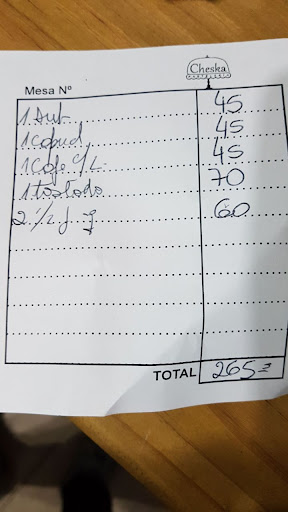 Cheska
Mesa Nº
1 45
1 45
1 Cafe C/L 45
1 Tostado 70
2 1/2 J 60
TOTAL 265